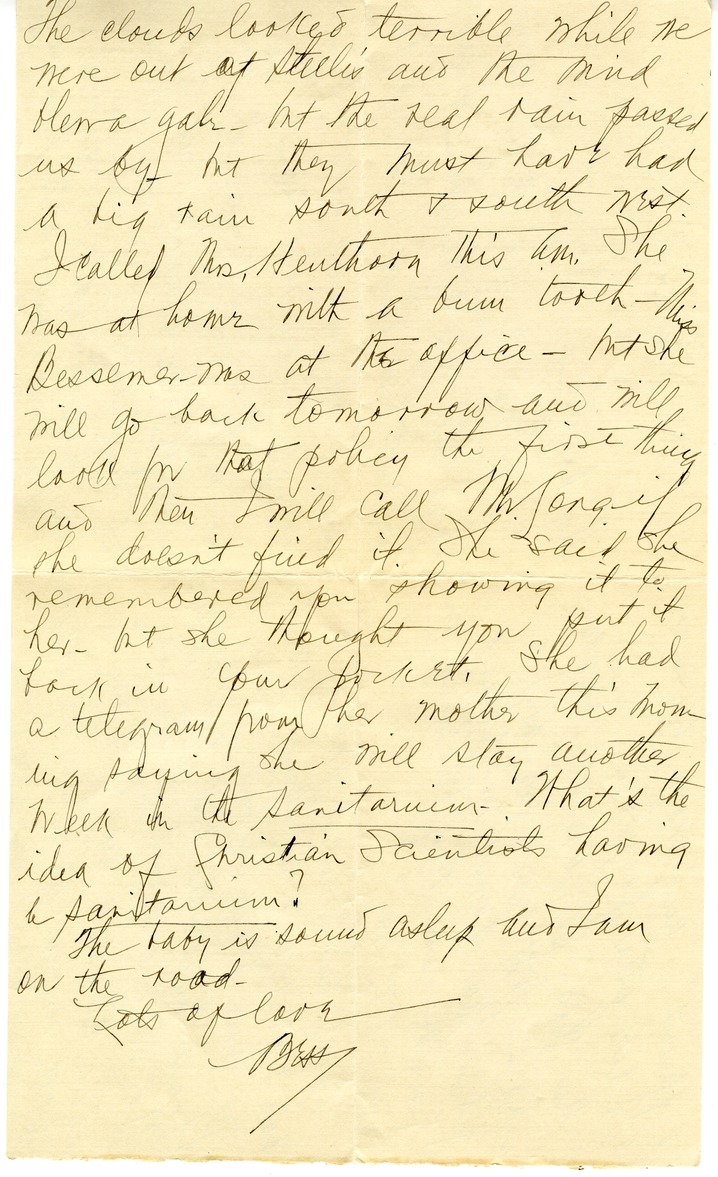 The clouds looked terrible while we
were out at Steele's and the wind
blew a gale - but the real rain passed
us by - but they must have had
a big rain south & south west.
I called Mrs. Henthorn this a.m. She
was at home with a bum tooth - Miss
Bessemer was at the office - but she
will go back tomorrow and will
look for that policy the first thing
and then I will call Mr. if
she doesn't find it. She said she
remembered you showing it to
her - but she thought you put it
back in your pocket. She had
a telegram from her mother this morn-
ing saying she will stay another
week in the sanitarium - What's the
idea of Christian Scientists having
a sanitarium?
The baby is sound asleep and I am
on the road -
Lots of love
Bess